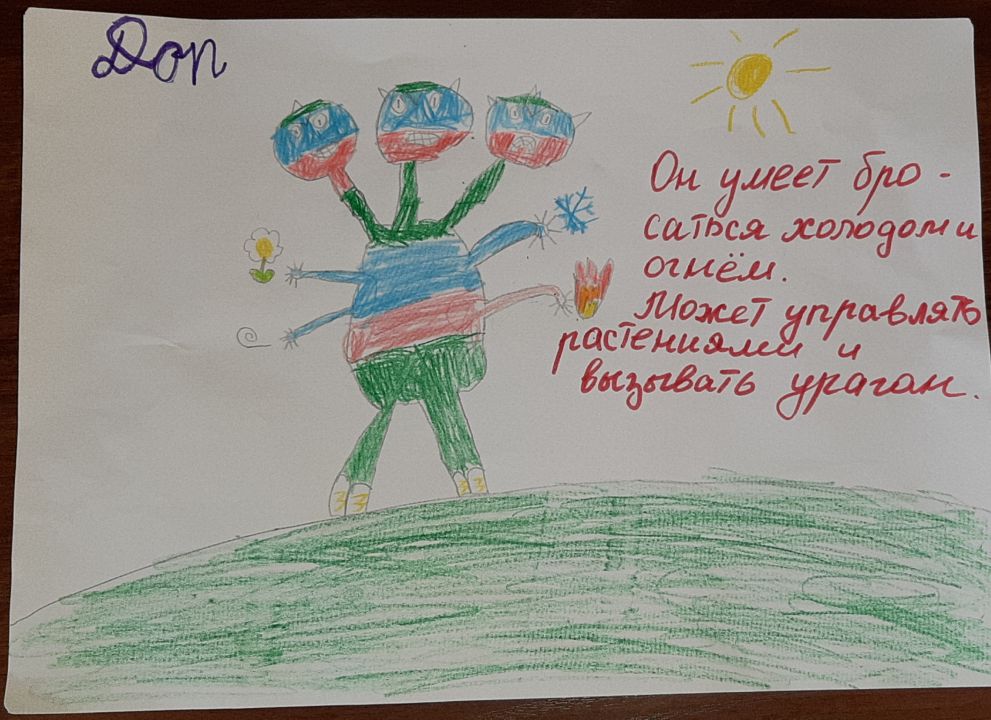 Дор
Он умеет бро -
саться холодом и
огнём.
Может управлять
растениями и
вызывать ураган.